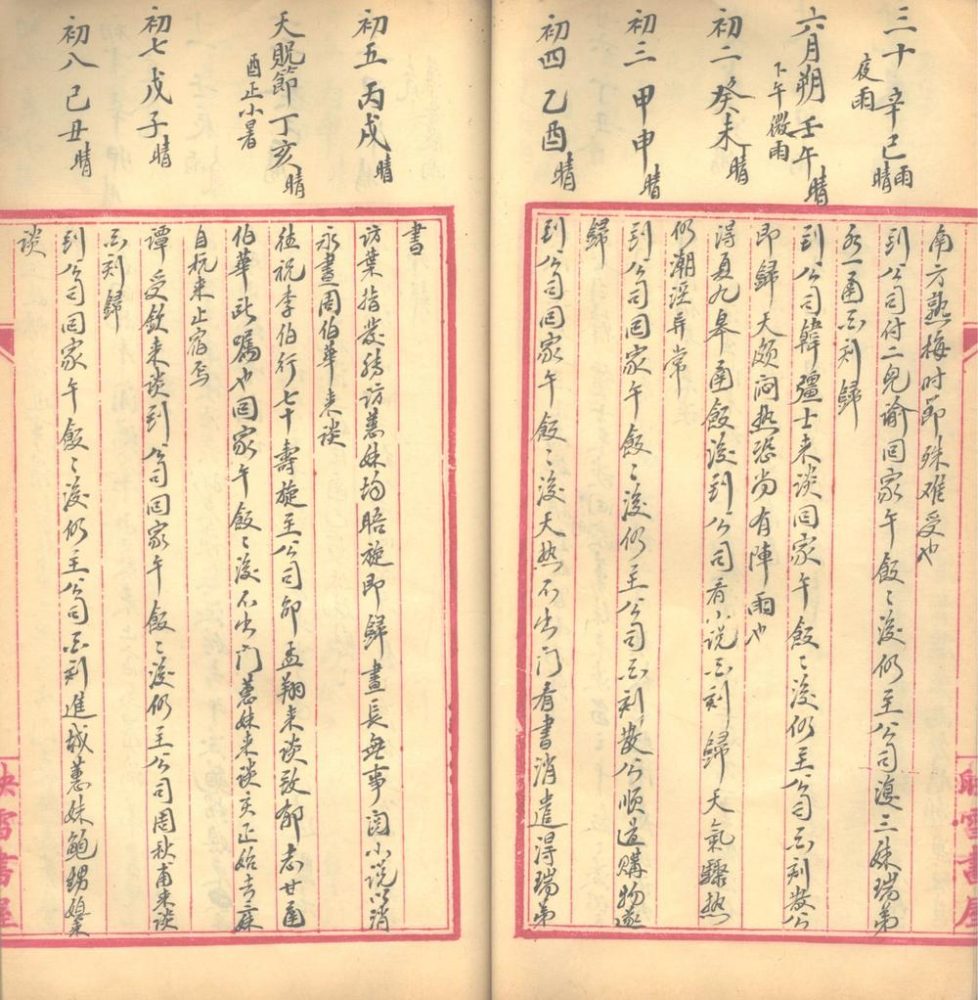 南方熟梅时節殊难受也
三十辛巳雨晴
夜雨
到公司付二兒谕回家午飯〻後仍至公司復三妹瑞弟
各一函酉刻歸
六月朔壬午晴
下午微雨
到公司韓彊士来谈回家午飯〻後仍至公司酉刻散公
即歸天颇闷热恐尚有陣雨也
初二癸未晴
得夏九皋函飯後到公司看小说酉刻歸天氣驟热
仍潮溼异常
初三甲申晴
到公司回家午飯〻後仍至公司酉刻散公順道購物遂
歸
初四乙酉晴
到公司回家午飯〻後天热不出门看書消遣得瑞弟
書
初五丙戌晴
访葉指發转访蕙妹均晤旋即歸晝長無事阅小说以消
永晝周伯華来谈
天貺節丁亥晴
酉正小暑
往祝李伯行七十壽旋至公司邰孟翔来谈致郁志甘函
伯華所嘱也回家午飯〻後不出门蕙妹来谈亥正始去三妹
自杭来止宿焉
初七戊子晴
谭受欽来谈到公司回家午飯〻後仍至公司周秋甫来谈
酉刻歸
初八己丑晴
到公司回家午飯〻後仍至公司酉刻進城蕙妹鲍甥媳来
谈
映雪書屋